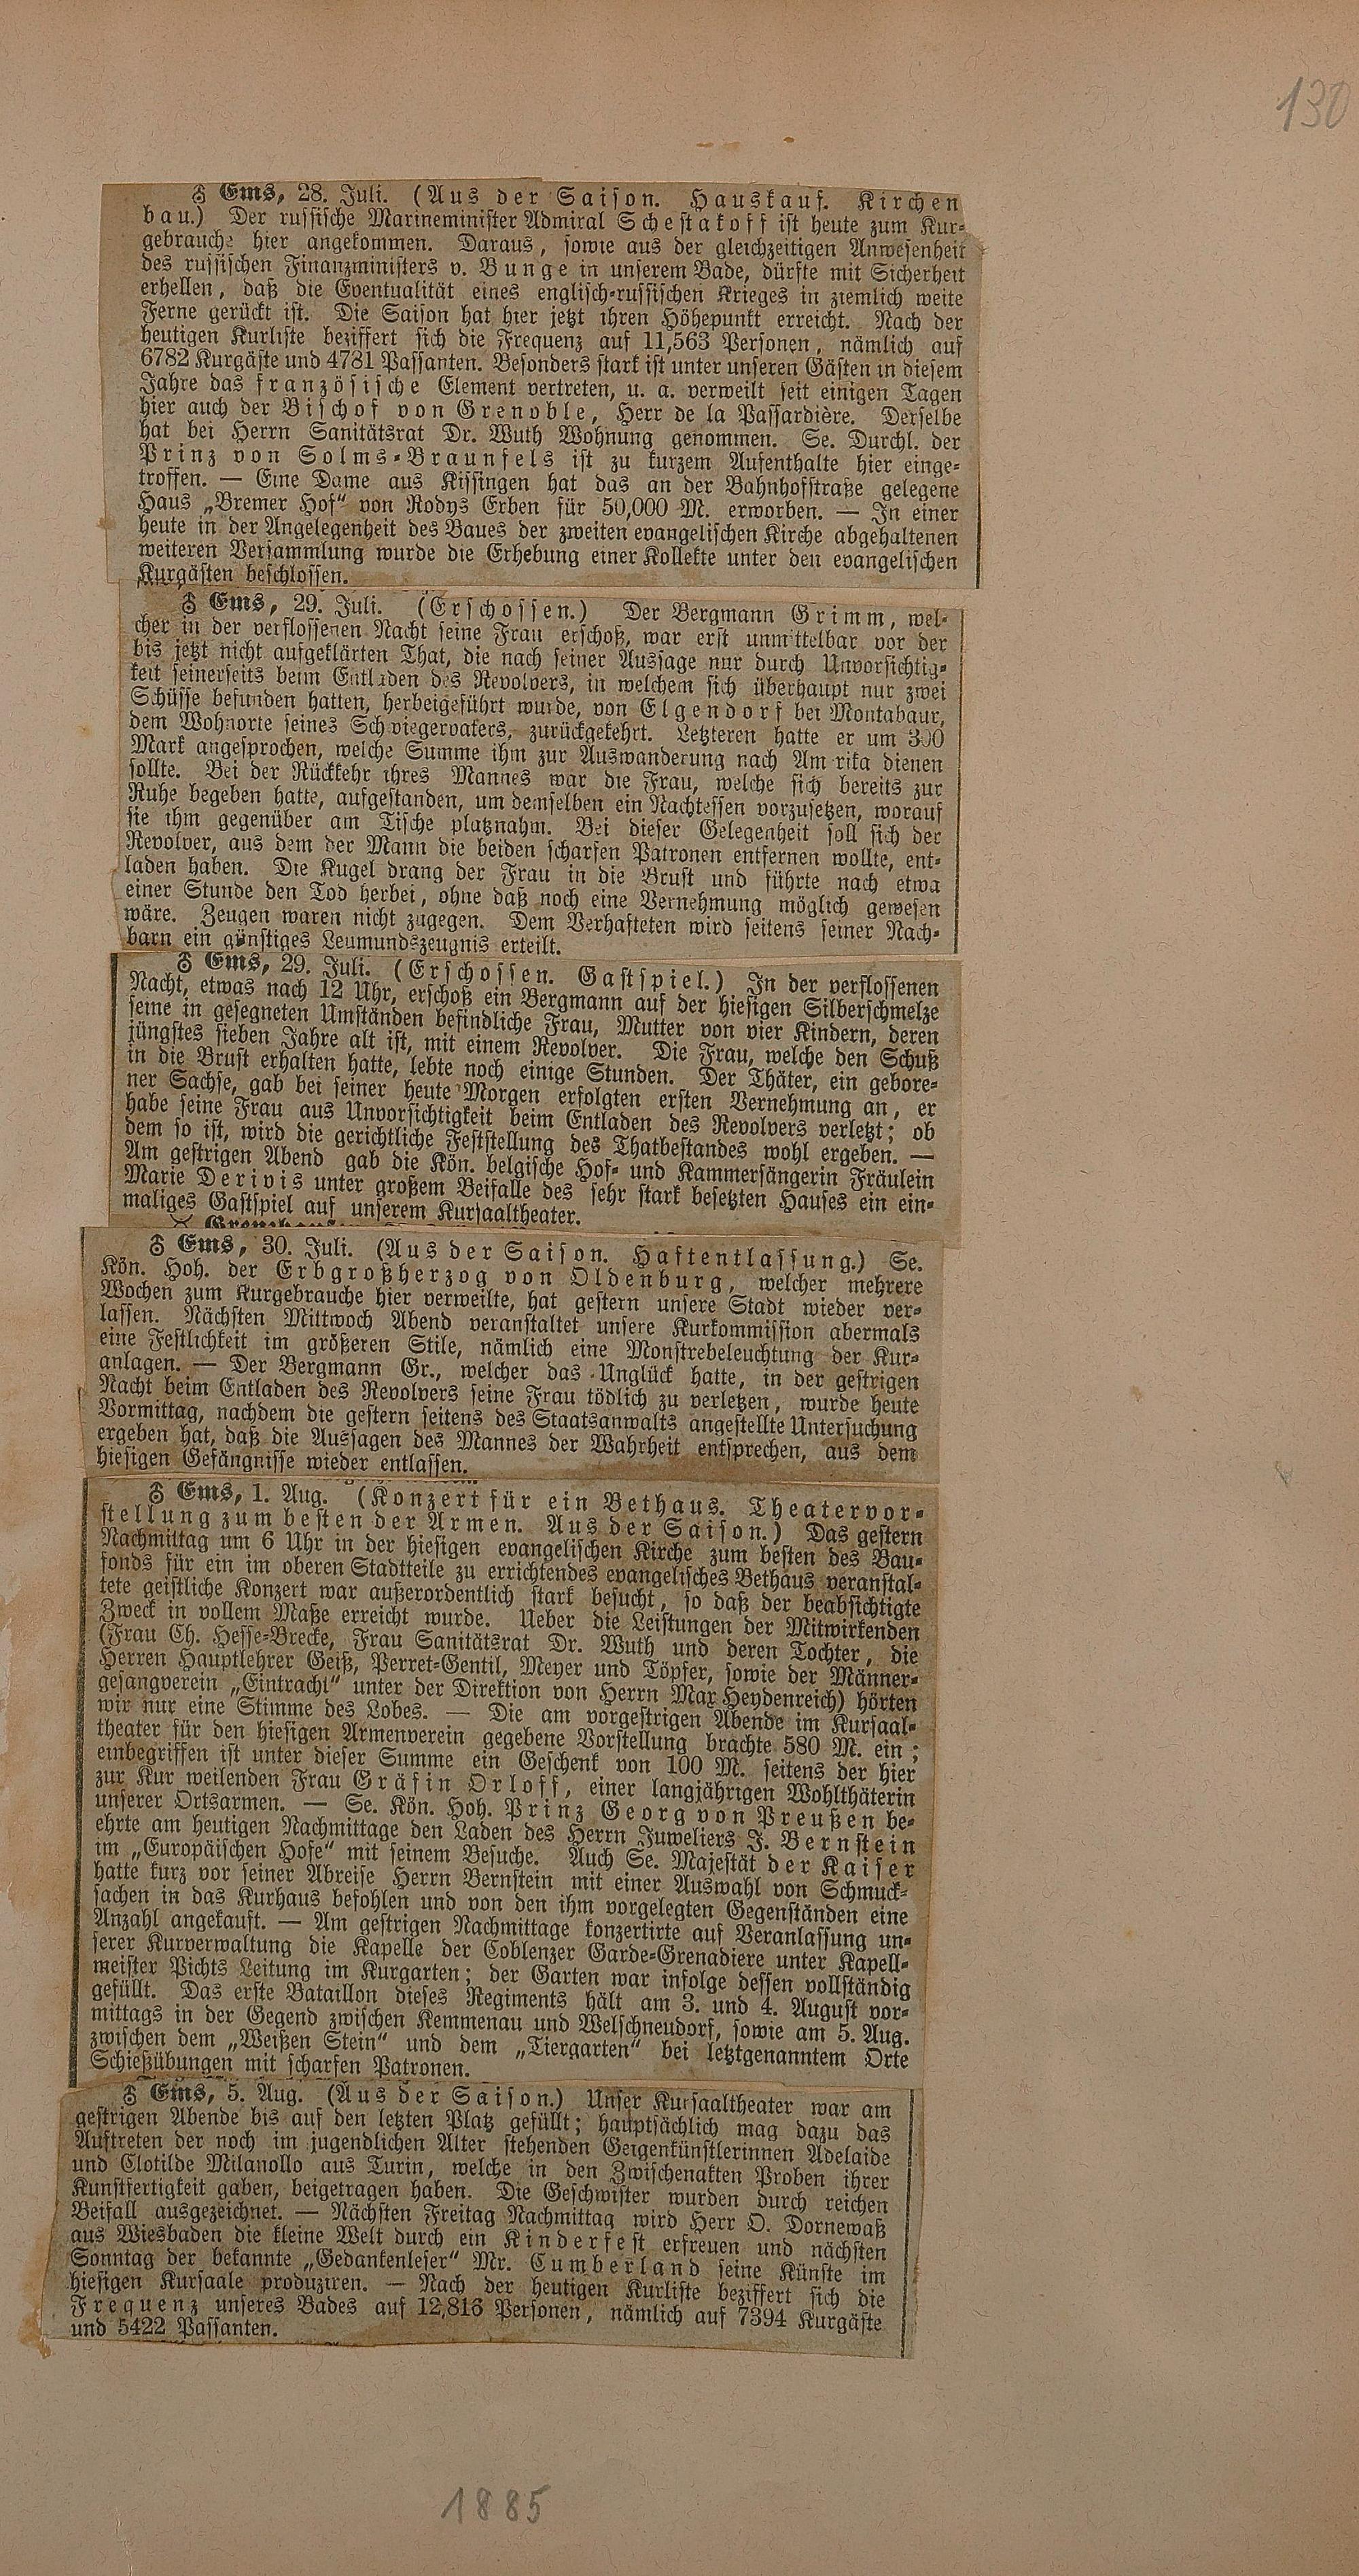 130
♁ Ems, 28. Juli. (Aus der Saison. Hauskauf. Kirchen
bau.) Der russische Marineminister Admiral Schestakoff ist heute zum Kur-
gebrauche hier angekommen. Daraus, sowie aus der gleichzeitigen Anwesenheit
des russischen Finanzministers v. Bunge in unserem Bade, dürfte mit Sicherheit
erhellen, daß die Eventualität eines englisch-russischen Krieges in ziemlich weite
Ferne gerückt ist. Die Saison hat hier jetzt ihren Höhepunkt erreicht. Nach der
heutigen Kurliste beziffert sich die Frequenz auf 11,563 Personen, nämlich auf
6782 Kurgäste und 4781 Passanten. Besonders stark ist unter unseren Gästen in diesem
Jahre das französische Element vertreten, u. a. verweilt seit einigen Tagen
hier auch der Bischof von Grenoble, Herr de la Passardière. Derselbe
hat bei Herrn Sanitätsrat Dr. Wuth Wohnung genommen. Se. Durchl. der
Prinz von Solms-Braunfels ist zu kurzem Aufenthalte hier einge-
troffen. — Eine Dame aus Kissingen hat das an der Bahnhofstraße gelegene
Haus „Bremer Hof“ von Rodys Erben für 50,000 M. erworben. — In einer
heute in der Angelegenheit des Baues der zweiten evangelischen Kirche abgehaltenen
weiteren Versammlung wurde die Erhebung einer Kollekte unter den evangelischen
Kurgästen beschlossen.
♁ Ems, 29. Juli. (Erschossen.) Der Bergmann Grimm, wel-
cher in der verflossenen Nacht seine Frau erschoß, war erst unmittelbar vor der
bis jetzt nicht aufgeklärten That, die nach seiner Aussage nur durch Unvorsichtig-
keit seinerseits beim Entladen des Revolvers, in welchem sich überhaupt nur zwei
Schüsse befunden hatten, herbeigeführt wurde, von Elgendorf bei Montabaur,
dem Wohnorte seines Schwiegervaters, zurückgekehrt. Letzteren hatte er um 300
Mark angesprochen, welche Summe ihm zur Auswanderung nach Am rika dienen
sollte. Bei der Rückkehr ihres Mannes war die Frau, welche sich bereits zur
Ruhe begeben hatte, aufgestanden, um demselben ein Nachtessen vorzusetzen, worauf
sie ihm gegenüber am Tische platznahm. Bei dieser Gelegenheit soll sich der
Revolver, aus dem der Mann die beiden scharfen Patronen entfernen wollte, ent-
laden haben. Die Kugel drang der Frau in die Brust und führte nach etwa
einer Stunde den Tod herbei, ohne daß noch eine Vernehmung möglich gewesen
wäre. Zeugen waren nicht zugegen. Dem Verhafteten wird seitens seiner Nach-
barn ein günstiges Leumundszeugnis erteilt.
♁ Ems, 29. Juli. (Erschossen. Gastspiel.) In der verflossenen
Nacht, etwas nach 12 Uhr, erschoß ein Bergmann auf der hiesigen Silberschmelze
seine in gesegneten Umständen befindliche Frau, Mutter von vier Kindern, deren
jüngstes sieben Jahre alt ist, mit einem Revolver. Die Frau, welche den Schuß
in die Brust erhalten hatte, lebte noch einige Stunden. Der Thäter, ein gebore-
ner Sachse, gab bei seiner heute Morgen erfolgten ersten Vernehmung an, er
habe seine Frau aus Unvorsichtigkeit beim Entladen des Revolvers verletzt; ob
dem so ist, wird die gerichtliche Feststellung des Thatbestandes wohl ergeben. —
Am gestrigen Abend gab die Kön. belgische Hof- und Kammersängerin Fräulein
Marie Derivis unter großem Beifalle des sehr stark besetzten Hauses ein ein-
maliges Gastspiel auf unserem Kursaaltheater.
♁ Ems, 30. Juli. (Aus der Saison. Haftentlassung.) Se.
Kön. Hoh. der Erbgroßherzog von Oldenburg, welcher mehrere
Wochen zum Kurgebrauche hier verweilte, hat gestern unsere Stadt wieder ver-
lassen. Nächsten Mittwoch Abend veranstaltet unsere Kurkommission abermals
eine Festlichkeit im größeren Stile, nämlich eine Monstrebeleuchtung der Kur-
anlagen. — Der Bergmann Gr., welcher das Unglück hatte, in der gestrigen
Nacht beim Entladen des Revolvers seine Frau tödlich zu verletzen, wurde heute
Vormittag, nachdem die gestern seitens des Staatsanwalts angestellte Untersuchung
ergeben hat, daß die Aussagen des Mannes der Wahrheit entsprechen, aus dem
hiesigen Gefängnisse wieder entlassen.
♁ Ems, 1. Aug. (Konzert für ein Bethaus. Theatervor-
stellung zum besten der Armen. Aus der Saison.) Das gestern
Nachmittag um 6 Uhr in der hiesigen evangelischen Kirche zum besten des Bau-
fonds für ein im oberen Stadtteile zu errichtendes evangelisches Bethaus veranstal-
tete geistliche Konzert war außerordentlich stark besucht, so daß der beabsichtigte
Zweck in vollem Maße erreicht wurde. Ueber die Leistungen der Mitwirkenden
(Frau Ch. Hesse-Brecke, Frau Sanitätsrat Dr. Wuth und deren Tochter, die
Herren Hauptlehrer Geiß, Perret-Gentil, Meyer und Töpfer, sowie der Männer-
gesangverein „Eintracht“ unter der Direktion von Herrn Max Heydenreich) hörten
wir nur eine Stimme des Lobes. — Die am vorgestrigen Abende im Kursaal-
theater für den hiesigen Armenverein gegebene Vorstellung brachte 580 M. ein;
einbegriffen ist unter dieser Summe ein Geschenk von 100 M. seitens der hier
zur Kur weilenden Frau Gräfin Orloff, einer langjährigen Wohlthäterin
unserer Ortsarmen. — Se. Kön. Hoh. Prinz Georg von Preußen be-
ehrte am heutigen Nachmittage den Laden des Herrn Juweliers J. Bernstein
im „Europäischen Hofe“ mit seinem Besuche. Auch Se. Majestät der Kaiser
hatte kurz vor seiner Abreise Herrn Bernstein mit einer Auswahl von Schmuck-
sachen in das Kurhaus befohlen und von den ihm vorgelegten Gegenständen eine
Anzahl angekauft. — Am gestrigen Nachmittage konzertirte auf Veranlassung un-
serer Kurverwaltung die Kapelle der Coblenzer Garde-Grenadiere unter Kapell-
meister Pichts Leitung im Kurgarten; der Garten war infolge dessen vollständig
gefüllt. Das erste Bataillon dieses Regiments hält am 3. und 4. August vor-
mittags in der Gegend zwischen Kemmenau und Welschneudorf, sowie am 5. Aug.
zwischen dem „Weißen Stein“ und dem „Tiergarten“ bei letztgenanntem Orte
Schießübungen mit scharfen Patronen.
♁ Ems, 5. Aug. (Aus der Saison.) Unser Kursaaltheater war am
gestrigen Abende bis auf den letzten Platz gefüllt; hauptsächlich mag dazu das
Auftreten der noch im jugendlichen Alter stehenden Geigenkünstlerinnen Adelaide
und Clotilde Milanollo aus Turin, welche in den Zwischenakten Proben ihrer
Kunstfertigkeit gaben, beigetragen haben. Die Geschwister wurden durch reichen
Beifall ausgezeichnet. — Nächsten Freitag Nachmittag wird Herr O. Dornewaß
aus Wiesbaden die kleine Welt durch ein Kinderfest erfreuen und nächsten
Sonntag der bekannte „Gedankenleser“ Mr. Cumberland seine Künste im
hiesigen Kursaale produziren. — Nach der heutigen Kurliste beziffert sich die
Frequenz unseres Bades auf 12,816 Personen, nämlich auf 7394 Kurgäste
und 5422 Passanten.
1885